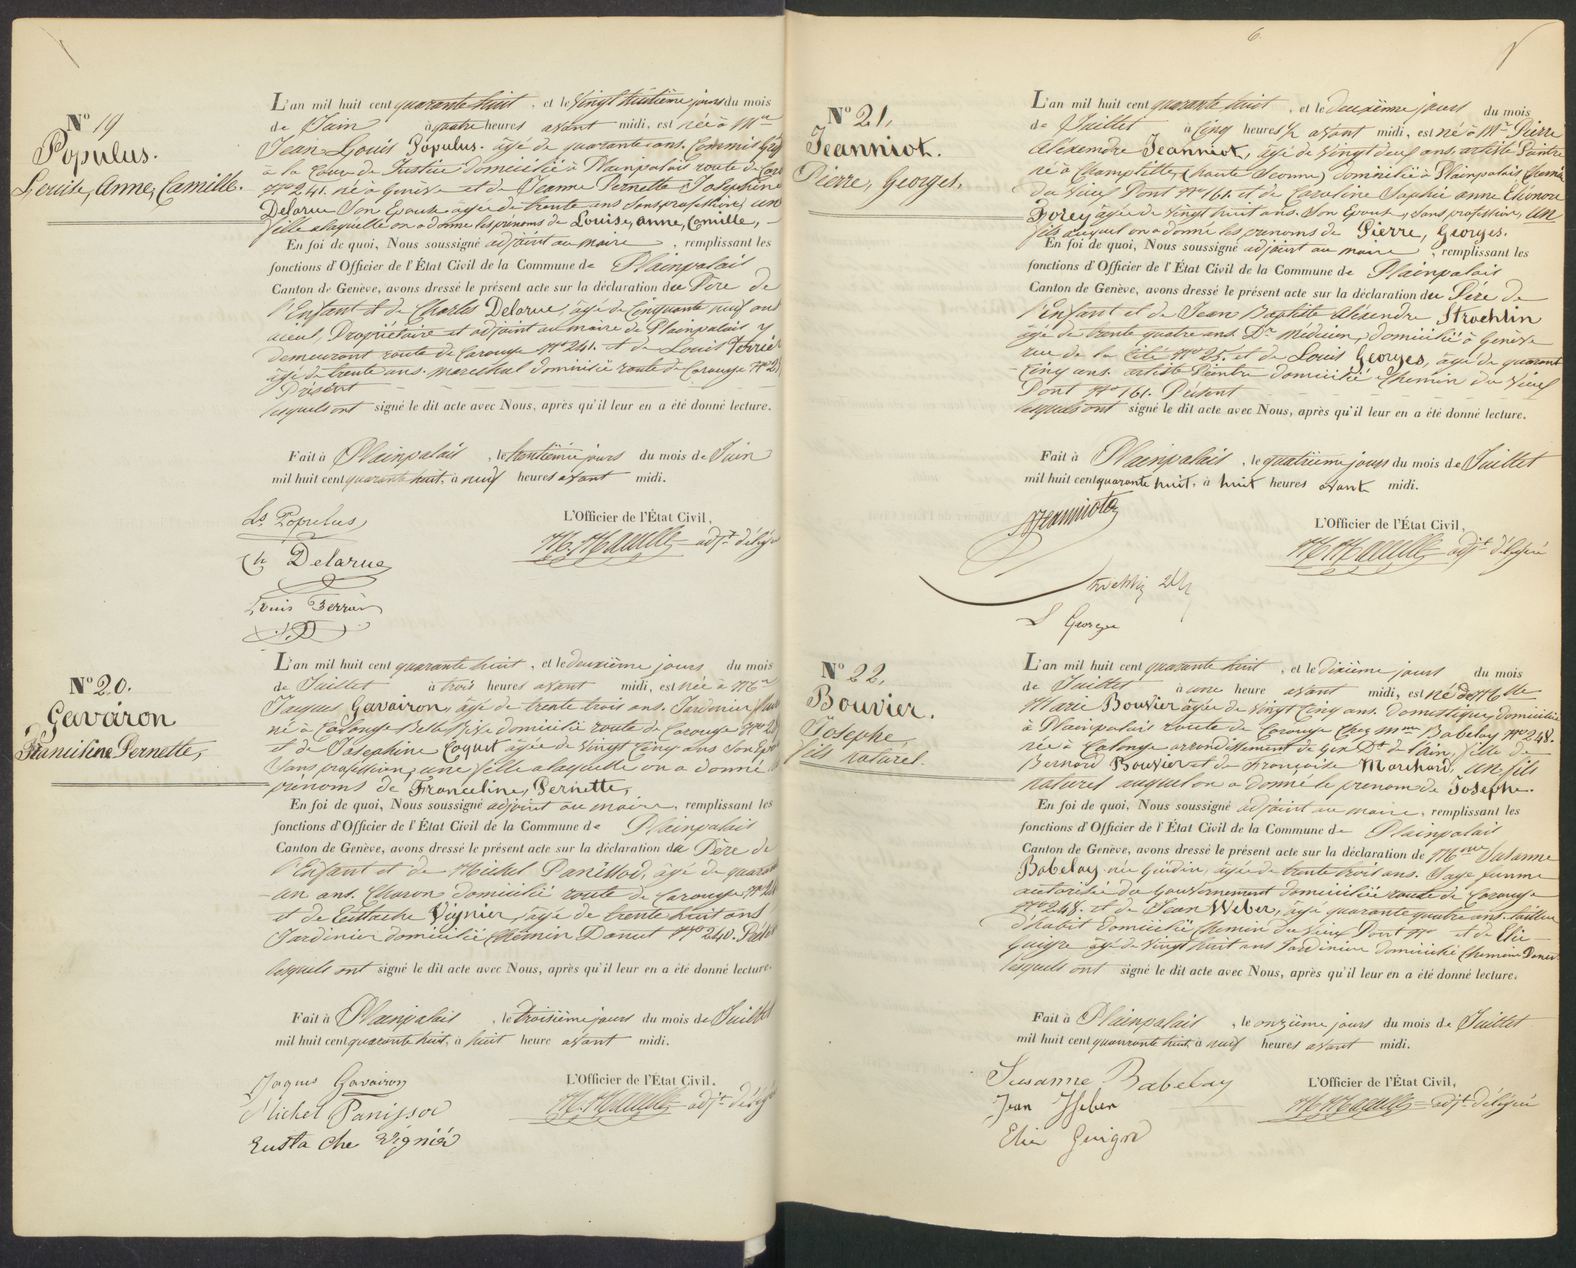 Nº 19
Populus.
Louise, Anne, Camille.
L'an mil huit cent quarante huit, et le vingt huitième jours du mois
de Juin à quatre heures avant midi, est née à Mr
Jean Louis Populus. âgé de quarante ans. Commis
à la Cour de Justice domicilié à Plainpalais route de
Nº 241. né à Genève et de Jeanne Pernette Joséphine
Delarue Son Epouse âgée de trente ans Sans profession, un
fille a laquelle on a donné les prénoms de Louise, anne, Camille,
En foi de quoi, Nous soussigné adjoint au maire, remplissant les
fonctions d'Officier de l'État Civil de la Commune de Plainpalais
Canton de Genève, avons dressé le présent acte sur la déclaration du Père de
l'Enfant et de Charles Delarue, âgé de Cinquante neuf ans
aïeul, Propriétaire et adjoint au maire de Plainpalais y
demeurant route de Carouge Nº 241. et de Louis
âgé de trente ans. marechal domicilié route de Carouge Nº
Présent
lesquels ont signé le dit acte avec Nous, après qu'il leur en a été donné lecture.
Fait à Plainpalais, le trentième jours du mois de Juin
mil huit cent quarante huit, à neuf heures avant midi.
Ls Populus
L'Officier de l'État Civil,
adjt délégué
Ch Delarue
Louis Ferrier
Nº 20.
Gavairon
Francéline Pernette,
L'an mil huit cent quarante huit, et le deuxième jours du mois
de Juillet à trois heures avant midi, est née à Mr
Jacques Gavairon, âgé de trente trois ans. Jardinier
né à Cologny domicilié route de Carouge Nº
et de Joséphine Coquet âgée de vingt Cinq ans Son
Sans profession, une fille a laquelle on a donné
prénoms de Franceline, Pernette,
En foi de quoi, Nous soussigné adjoint au maire, remplissant les
fonctions d'Officier de l'État Civil de la Commune de Plainpalais
Canton de Genève, avons dressé le présent acte sur la déclaration du Père de
l'Enfant et de Michel Panissod, âgé de quarante
un ans. Charon domicilié route de Carouge Nº
et de Eustache Vignier, âgé de trente huit ans
Jardinier domicilié Chemin Dancet Nº 240.
lesquels ont signé le dit acte avec Nous, après qu'il leur en a été donné lecture.
Fait à Plainpalais, le troisième jours du mois de Juillet
mil huit cent quarante huit, à huit heure avant midi.
Jaques Gavairon
L'Officier de l'État Civil.
adjt délégué
Michel Panissod
Eustache Vignier
6.
Nº 21,
Jeanniot.
Pierre, Georges,
L'an mil huit cent quarante huit, et le deuxième jours du mois
de Juillet à Cinq heures ½ avant midi, est né à Mr Pierre
Alexendre Jeanniot, âgé de vingt deux ans. artiste Peintre
né à Champlitte, (haute Saonne) domicilié à Plainpalais Chemin
du vieux Pont Nº 161. et de Caroline Sophie anne Eléonore
Forey âgée de vingt huit ans. Son Epouse, Sans profession, un
fils auquel on a donné les prenoms de Pierre, Georges.
En foi de quoi, Nous soussigné adjoint au maire, remplissant les
fonctions d'Officier de l'État Civil de la Commune de Plainpalais
Canton de Genève, avons dressé le présent acte sur la déclaration du Père de
l'Enfant et de Jean Baptiste Alexendre Stroehlin
âgé de trente quatre ans. Dr Médecin, domicilié à Genève
rue de la Cité Nº 25. et de Louis Georges, âgé de quarante
Cinq ans. artiste Peintre domicilié Chemin du vieux
Pont Nº 161. Présent
lesquels ont signé le dit acte avec Nous, après qu'il leur en a été donné lecture.
Fait à Plainpalais, le quatrième jours du mois de Juillet
mil huit cent quarante huit, à huit heures avant midi.
Jeanniot
L'Officier de l'État Civil,
adjt délégué
Stroehlin
L Georges
Nº 22,
Bouvier.
Josephe
fils naturel.
L'an mil huit cent quarante huit, et le dixième jours du mois
de Juillet à une heure avant midi, est né de Mlle
Marie Bouvier âgée de vingt Cinq ans. domestique, domiciliée
à Plainpalais route de Carouge Chez Mme Babelay Nº 248.
née à Colonge arrondissement de Gex Dt de l'ain, fille de
Bernard Bouvier et de Françoise Marchand, un fils
naturel auquel on a donné le prenom de Josephe.
En foi de quoi, Nous soussigné adjoint au maire, remplissant les
fonctions d'Officier de l'État Civil de la Commune de Plainpalais
Canton de Genève, avons dressé le présent acte sur la déclaration de Mme Susanne
Babelay née Gindin, âgée de trente trois ans. Sage femme
autorisée du Gouvernement domiciliée route de Carouge
Nº 248. et de Jean Weber, âgé quarante quatre ans. tailleur
d'habit domicilié Chemin du vieux Pont Nº et de Elie
Guigre âgé de vingt huit ans Jardinier domicilié Chemin Dancet
lesquels ont signé le dit acte avec Nous, après qu'il leur en a été donné lecture.
Fait à Plainpalais, le onzième jours du mois de Juillet
mil huit cent quanrante huit, à neuf heures avant midi.
Susanne Babelay
L'Officier de l'État Civil,
adjt délégué
Jean Weber
Elie Guigre